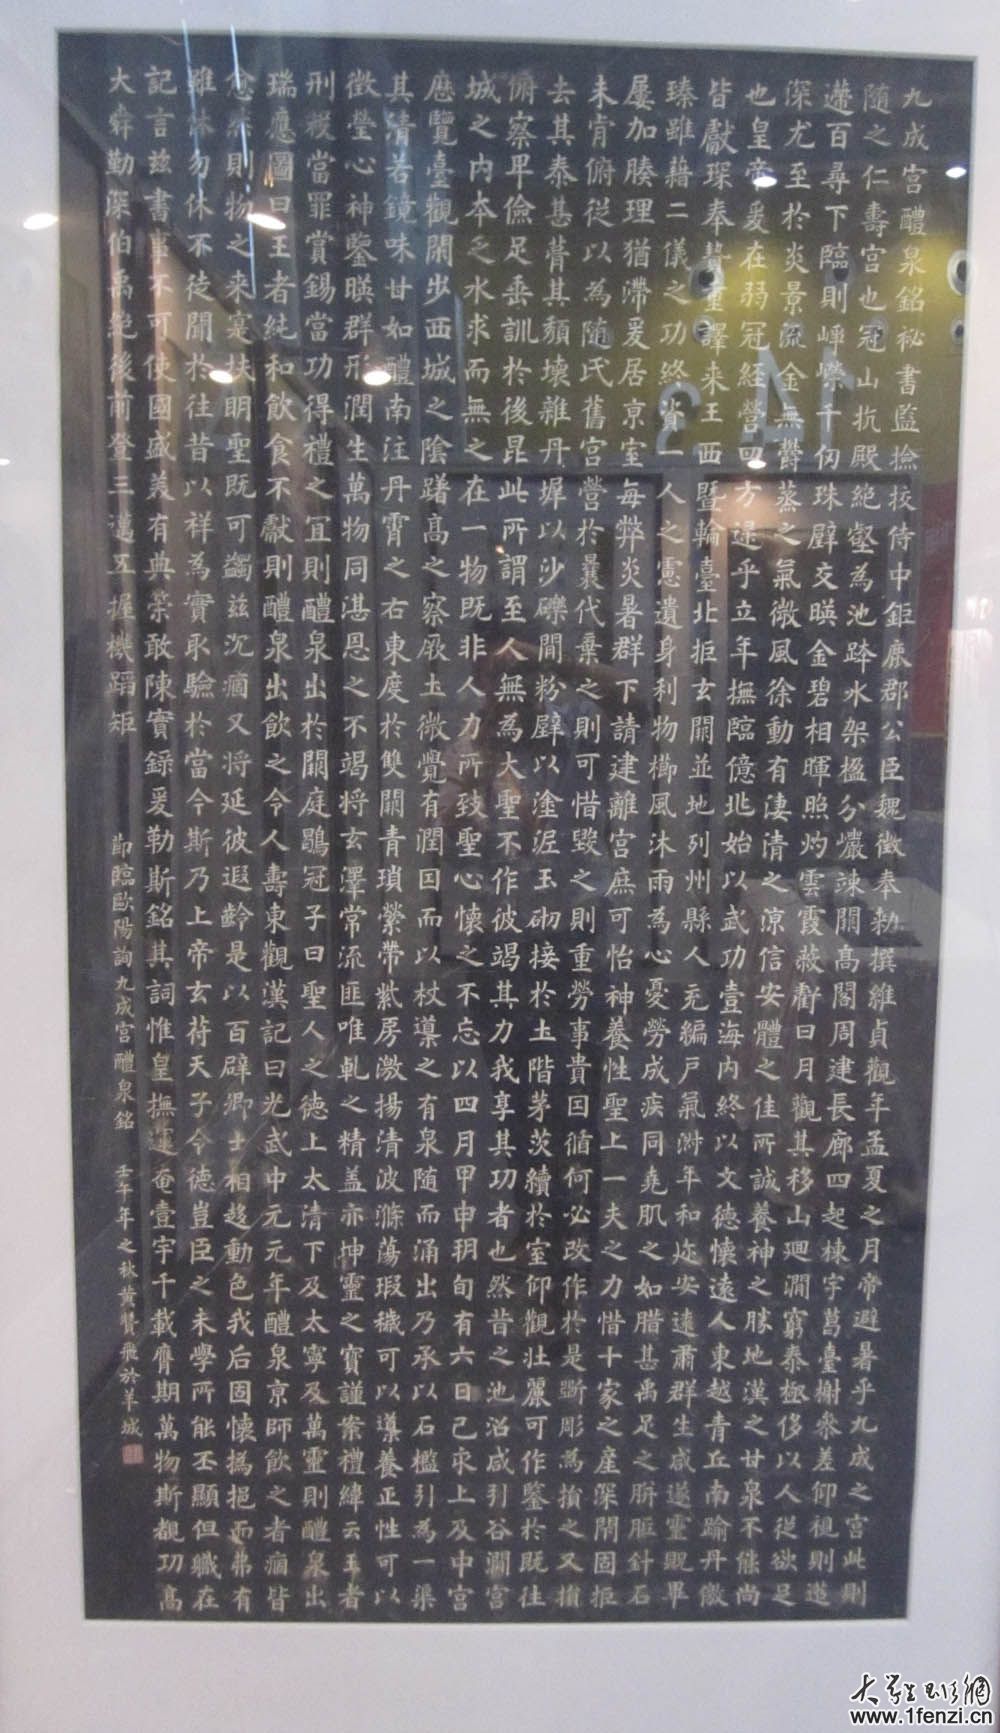 九成宮醴泉銘祕書監撿挍侍中鉅鹿郡公臣魏徵奉勑撰維貞觀年孟夏之月帝避暑乎九成之宮此則
随之仁壽宮也冠山抗殿絕壑為池跨水架楹分巖竦闕高閣周建長廊四起棟宇葛臺榭參差仰視則迢
遰百尋下臨則崢嶸千仞珠璧交暎金碧相暉照灼雲霞蔽虧日月觀其移山迴澗窮泰極侈以人從欲足
深尤至於炎景流金無鬱蒸之氣微風徐動有淒清之涼信安體之佳所誠養神之勝地漢之甘泉不能尚
也皇帝爰在弱冠經營四方逮乎立年撫臨億兆始以武功壹海內終以文德懷遠人東越青丘南踰丹徼
皆獻琛奉贄重譯来王西暨輪臺北拒玄闕並地列州縣人充編戶氣淑年和迩安遠肅群生咸遂靈貺畢
臻雖藉二儀之功終資一人之慮遺身利物櫛風沐雨為心憂勞成疾同堯肌之如腊甚禹足之胼胝針石
屢加腠理猶滯爰居京室每弊炎暑群下請建離宮庶可怡神養性聖上一夫之力惜十家之産深閇固拒
未肯俯從以為随氏舊宮營於曩代棄之則可惜毀之則重勞事貴因循何必改作於是斲彫為損之又損
去其泰甚葺其頹壞雜丹墀以沙礫間粉壁以塗泥玉砌接於土階茅茨續於室仰觀壯麗可作鑒於既往
俯察卑儉足垂訓於後昆此所謂至人無為大聖不作彼竭其力我享其功者也然昔之池沼咸引谷澗宮
城之內本乏水求而無之在一物既非人力所致聖心懷之不忘以四月甲申朔旬有六日己亥上及中宮
歷覽臺觀閑步西城之陰躊高之察厥土微覺有潤因而以杖導之有泉随而涌出乃承以石檻引為一渠
其清若鏡味甘如醴南注丹霄之右東度於雙闕青瑣縈帶紫房激揚清波滌蕩瑕穢可以導養正性可以
徵瑩心神鑒暎群形潤生萬物同湛恩之不竭將玄澤常流匪唯乹之精盖亦坤靈之寶謹案禮緯云王者
刑殺當罪賞錫當功得禮之宜則醴泉出於闕庭鶡冠子曰聖人之德上太清下及太寧及萬靈則醴泉出
瑞應圖曰王者純和飲食不獻則醴泉出飲之令人壽東觀漢記曰光武中元元年醴泉京師飲之者痼皆
愈然則物之来寔扶明聖既可蠲兹沉痼又将延彼遐齡是以百辟卿士相趍動色我后固懷撝挹而弗有
雖休勿休不徒聞於往昔以祥為實取驗於當今斯乃上帝玄符天子令德豈臣之末學所能丕顯但職在
記言兹書事不可使國盛美有典策敢陳實錄爰勒斯銘其詞惟皇撫運奄壹宇千載膺期萬物斯覩功高
大舜勤深伯禹絕後前登三邁五握機蹈矩
節臨歐陽詢九成宮醴泉銘 壬午年之秋黄贊飛於羊城
大学生书法網
www.1fenzi.cn